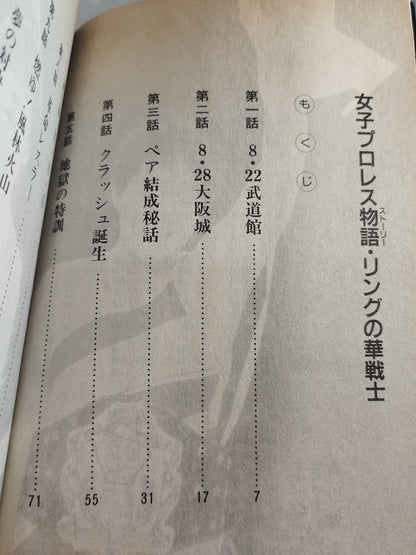 女子プロレス物語・リングの華戦士
ストーリー
もくじ
第一話 8・22武道館…………7
第二話 8・28大阪城…………17
第三話 ペア結成秘話…………31
第四話 クラッシュ誕生…………55
第五話 地獄の特訓…………71
風林火山